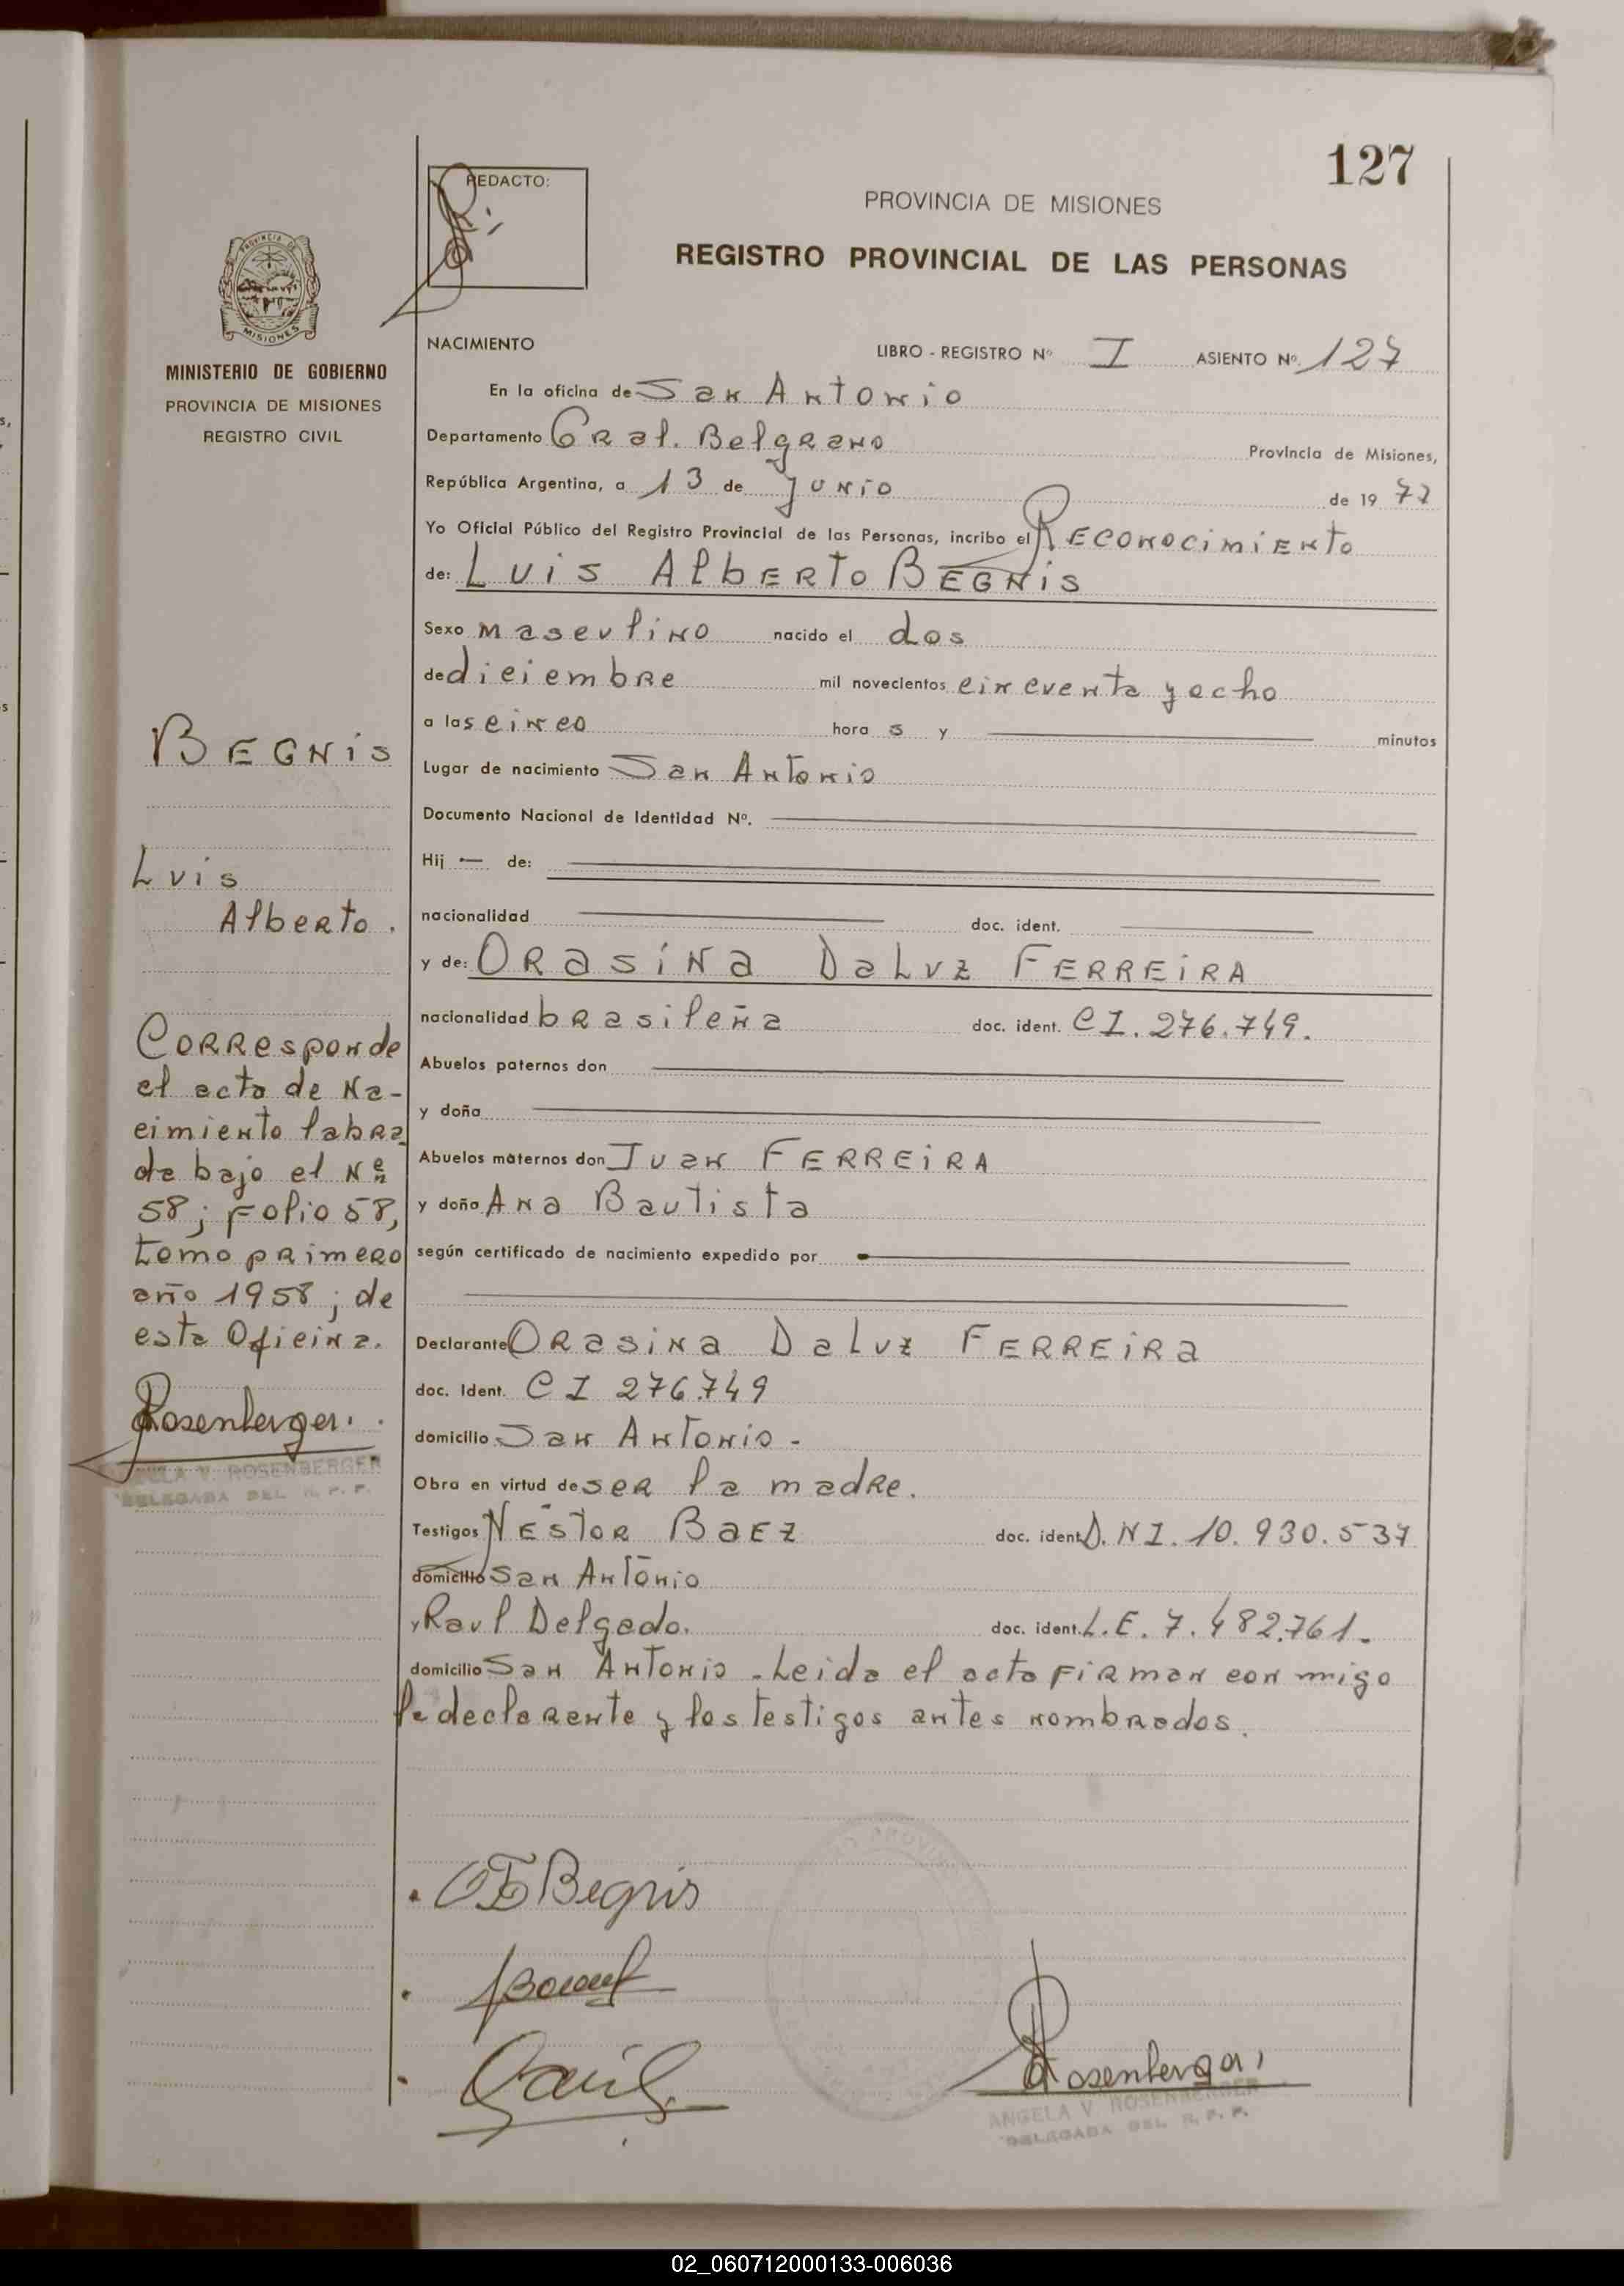 127
REDACTO:
PROVINCIA DE MISIONES
REGISTRO PROVINCIAL DE LAS PERSONAS
PROVINCIA DE
MISIONES
MINISTERIO DE GOBIERNO
PROVINCIA DE MISIONES
REGISTRO CIVIL
NACIMIENTO LIBRO - REGISTRO Nº I ASIENTO Nº. 127
En la oficina de San Antonio
Departamento Gral. Belgrano Provincia de Misiones,
República Argentina, a 13 de junio de 19 77
Yo Oficial Público del Registro Provincial de las Personas, incribo el Reconocimiento
de: Luis Alberto BEGNIS
Sexo masculino nacido el dos
de diciembre mil novecientos cincuenta y ocho
a las cinco hora s y minutos
Lugar de nacimiento San Antonio
Documento Nacional de Identidad Nº.
Hij — de:
nacionalidad doc. ident.
y de: ORasiNa DaLuz FERREiRA
nacionalidad brasileña doc. ident. CI. 276.749.
Abuelos paternos don
y doña
Abuelos maternos don Juan FERREiRA
y doña Ana Bautista
según certificado de nacimiento expedido por
Declarante Orasina DaLuz FERREiRa
doc. Ident. CI 276.749
domicilio San Antonio -
Obra en virtud de ser la madre.
Testigos NESTOR BaEZ doc. ident. D.NI. 10.930.537
domicilio San Antonio
y Raul Delgado. doc. ident. L.E. 7.482.761.
domicilio San Antonio. Leida el acta firman con migo
la declarante y los testigos antes nombrados.
BEGNis
Luis
Alberto.
Corresponde
el acta de Na-
cimiento labra
da bajo el Nº
58; Folio 58,
tomo primero
año 1958; de
esta Oficina.
Rosenberger.
ANGELA V. ROSENBERGER
DELEGADA DEL R. P. P.
Begnis
Rosenberger
ANGELA V. ROSENBERGER
DELEGADA DEL R. P. P.
02_060712000133-006036